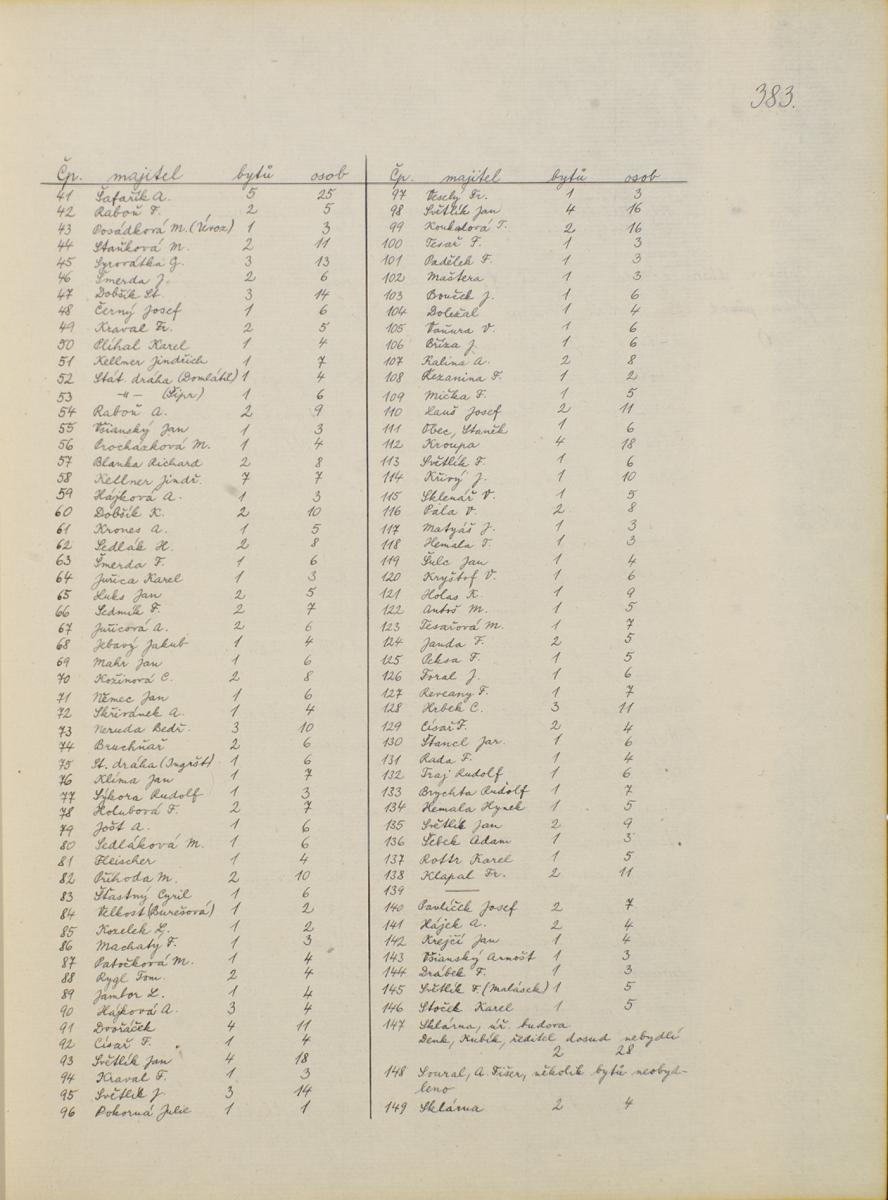 383.
Čp. majitel bytů osob
41 Šafařík A. 5 25
42 Raboň F. 2 5
43 Posádková M. (Úvoz) 1 3
44 Staňková M. 2 11
45 Syrovátka G. 3 13
46 Šmerda J. 2 6
47 Dobšík St. 3 14
48 Černý Josef 1 6
49 Kraval Fr. 2 5
50 Plíhal Karel 1 4
51 Kellner Jindřich 1 7
52 Stát. dráha (Domlátil) 1 4
53 -"- (Šipr) 1 6
54 Raboň A. 2 9
55 Všianský Jan 1 3
56 Procházková M. 1 4
57 Blanka Richard 2 8
58 Kellner Jindř. 7 7
59 Hájková A. 1 3
60 Dobšík K. 2 10
61 Krones A. 1 5
62 Sedlák H. 2 8
63 Šmerda F. 1 6
64 Juřica Karel 1 3
65 Huks Jan 2 5
66 Sedmík F. 2 7
67 Juřicová A. 2 6
68 Jebavý Jakub 1 4
69 Mahr Jan 1 6
70 Kožinová C. 2 8
71 Němec Jan 1 6
72 Skřivánek A. 1 4
73 Neruda Bedř. 3 10
74 Bruchňař 2 6
75 St. dráha (Ingršt) 1 6
76 Klíma Jan 1 7
77 Sýkora Rudolf 1 3
78 Holubová F. 2 7
79 Jošt A. 1 6
80 Sedláková M. 1 6
81 Fleischer 1 4
82 Příhoda M. 2 10
83 Šťastný Cyril 1 6
84 Velkost (Burešová) 1 2
85 Kozelek L. 1 2
86 Machatý F. 1 3
87 Patočková M. 1 4
88 Rygl Tom. 2 4
89 Jambor L. 1 4
90 Hájková A. 3 4
91 Dvořáček 4 11
92 Císař F. 1 4
93 Světlík Jan 4 18
94 Kraval F. 1 3
95 Světlík J 3 14
96 Pokorná Julie 1 1
Čp. majitel bytů osob
97 Veselý Fr. 1 3
98 Světlík Jan 4 16
99 Koukalová T. 2 16
100 Tesař F. 1 3
101 Padělek F. 1 3
102 Maštera 1 3
103 Bouček J. 1 6
104 Doležal 1 4
105 Vaňura V. 1 6
106 Bříza J. 1 6
107 Kalina A. 2 8
108 Řezanina F. 1 2
109 Mička F. 1 5
110 Hauš Josef 2 11
111 Obec, Staněk 1 6
112 Kroupa 4 18
113 Světlík F. 1 6
114 Křivý J. 1 10
115 Sklenář V. 1 5
116 Pála V. 2 8
117 Matyáš J. 1 3
118 Hemala T. 1 3
119 Šulc Jan 1 4
120 Kryštof V. 1 6
121 Holas K. 1 9
122 Antoš M. 1 5
123 Tesařová M. 1 7
124 Janda F. 2 5
125 Peksa F. 1 5
126 Foral J. 1 6
127 Kerčany F. 1 7
128 Hrbek C. 3 11
129 Císař F. 2 4
130 Štancl Jar. 1 6
131 Rada F. 1 4
132 Traj Rudolf 1 6
133 Brychta Rudolf 1 7
134 Hemala Hynek 1 5
135 Světlík Jan 2 9
136 Šebek Adam 1 3
137 Rottr Karel 1 5
138 Klapal Fr. 2 11
139 —
140 Pavlíček Josef 2 7
141 Hájek A. 2 4
142 Krejčí Jan 1 4
143 Všianský Arnošt 1 3
144 Drábek F. 1 3
145 Světlík F. (Malásek) 1 5
146 Stoček Karel 1 5
147 Sklárna, úř. budova
Denk, Kubík, ředitel dosud nebydlí
2 28
148 Soural, A. Fišer, několik bytů neobyd-
leno
149 Sklárna 2 4